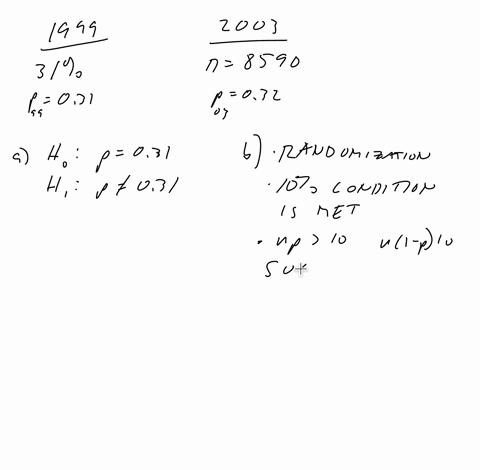 1999
31%
p99 = 0.31
2003
n = 8590
p03 = 0.32
a) H0: p = 0.31
H1: p ≠ 0.31
b) · RANDOMIZATION
· 10% CONDITION
IS MET
· np > 10 n(1-p) 10